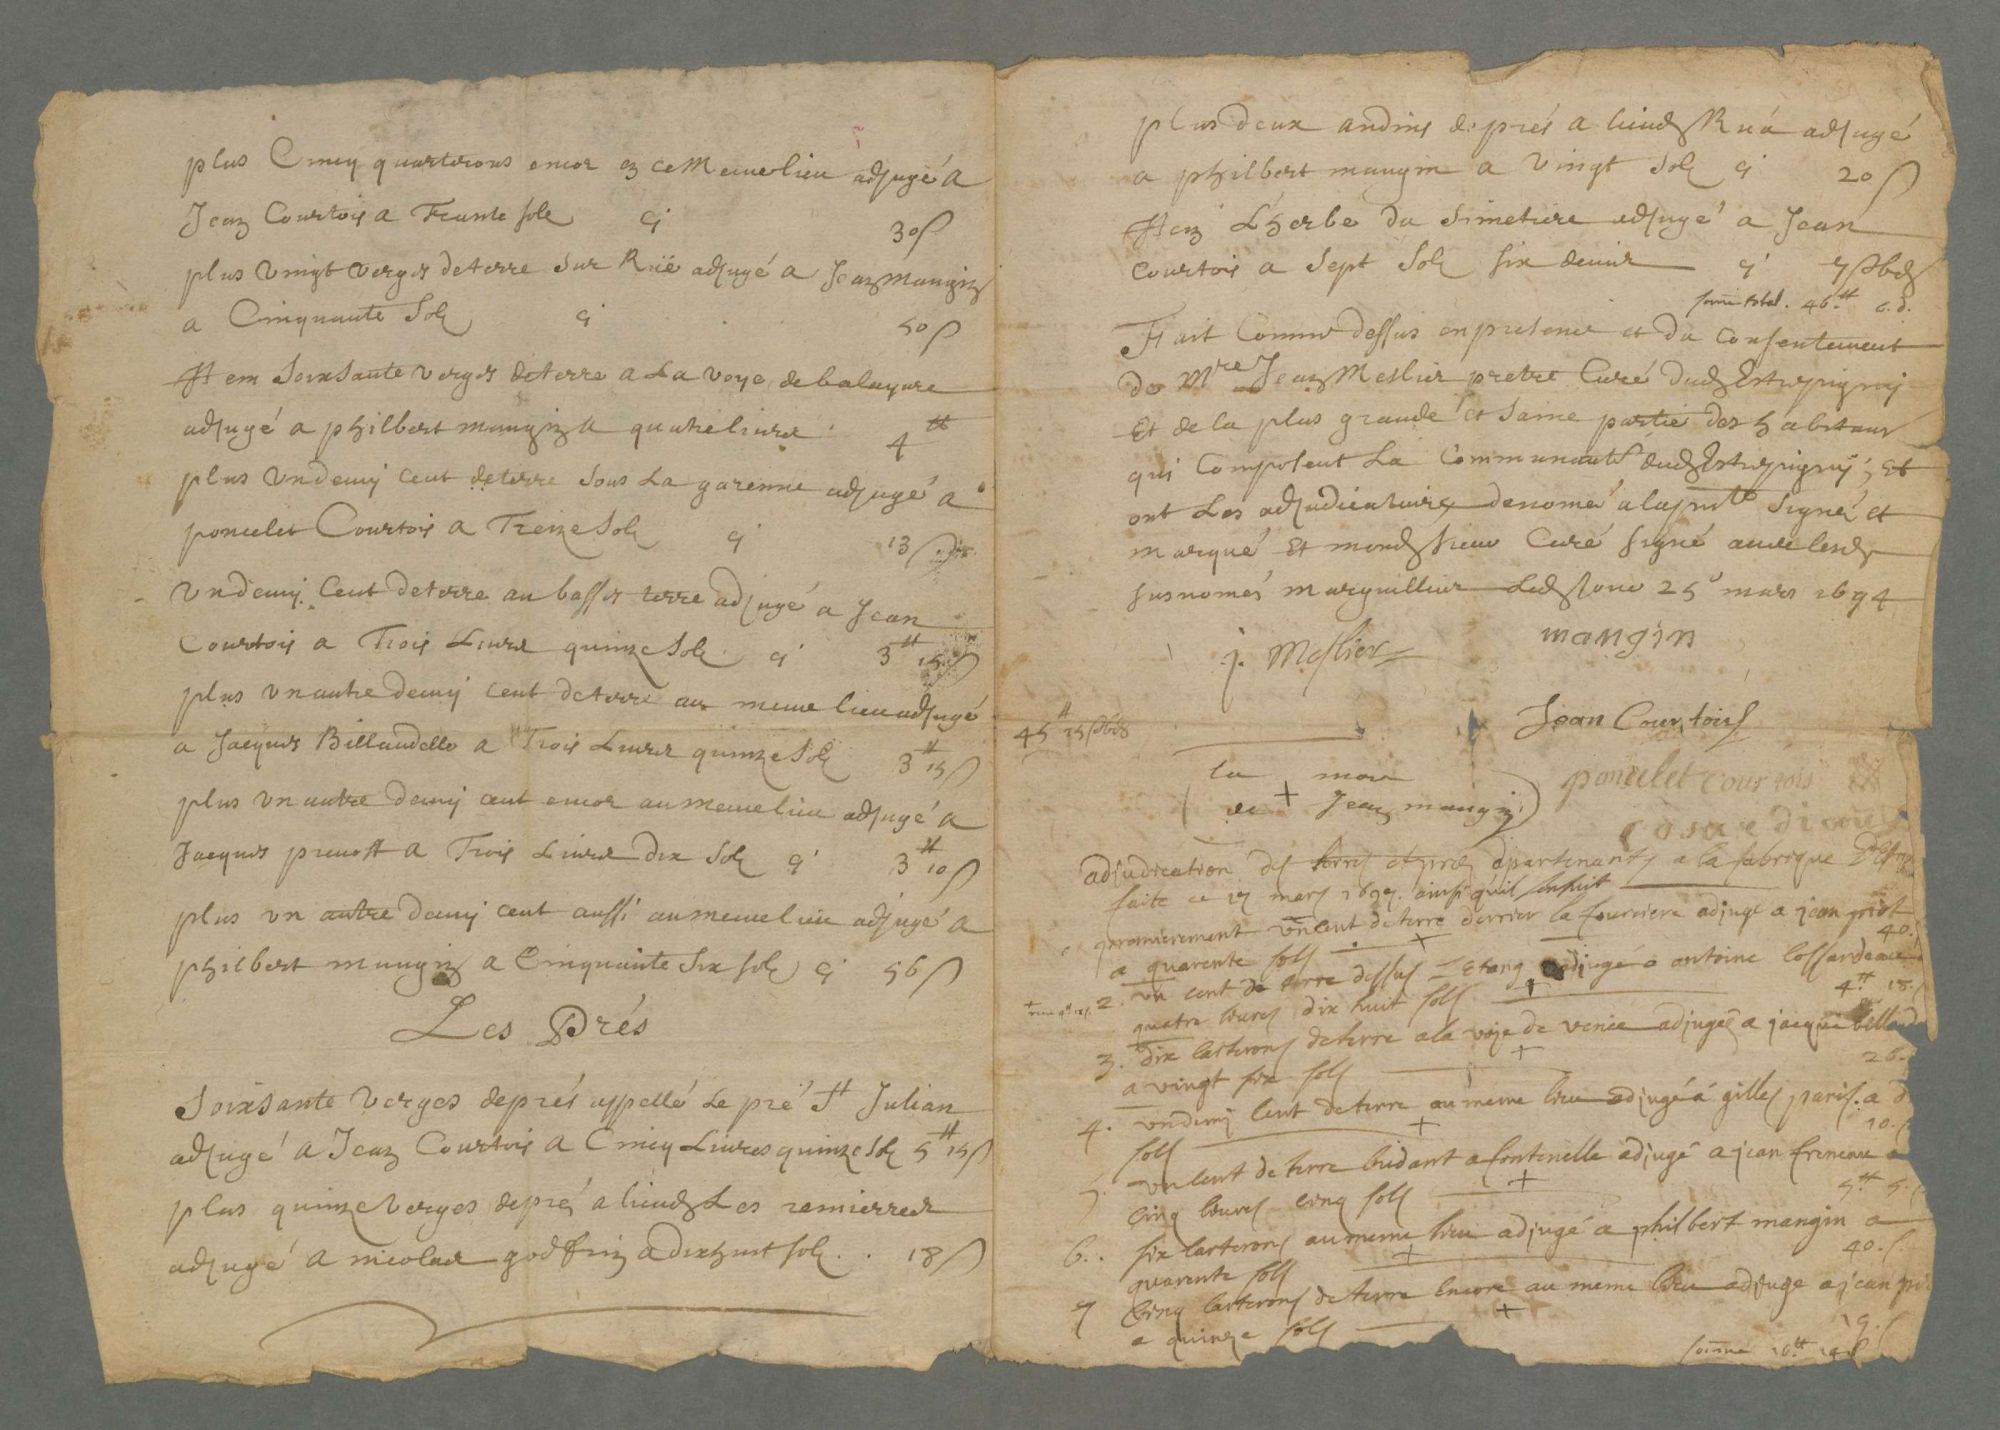 plus Cincq quarterons encor en ce Meme lieu adjugé a
Jean Courtois a Trante sols cy 30 s
plus Vingt verges de terre sur Ruë adjugé a Jean Mangin
a Cinquante Sols cy 50 s
Item Soixsante verges de terre a La voye de balayure
adjugé a philbert mangin a quatre livres 4 ₶
plus Un demy cent de terre sous La garenne adjugé a
poncelet Courtois a Treize Sols cy 13 s
Un demy Cent de terre au basses terre adjugé a Jean
Courtois a Trois Livres quinze Sols cy 3 ₶ 15 s
plus un autre demy cent de terre au meme lieu adjugé
a Jacques Billaudelle a Trois Livres quinze Sols 3 ₶ 15 s
plus un autre demy cent encor au meme lieu adjugé a
Jacques prevost a Trois Livres dix Sols cy 3 ₶ 10 s
plus un autre demy cent aussi au meme lieu adjugé a
philbert mangin a Cinquante Six sols cy 56 s
Les Prés
Soixsante Verges de prés appellé Le pré St Julian
adjugé a Jean Courtois a Cincq Livres quinze sols 5 ₶ 15 s
plus quinze Verges de pré a lieud Les
adjugé a nicolas godfrin a dix huit sols 18 s
plus deux andins de prés a lieud Ruá adjugé
a philbert mangin a Vingt Sols cy 20 s
Item L'herbe du Simetiere adjugé a Jean
Courtois a Sept Sols six denier cy 7 s 6 d
somme total. 46 ₶ 6. d.
Fait Comme dessus en presence et du Consentement
de Mre Jean Meslier pretre Curé dud Estrepigny
Et de la plus grande et Saine partie des habitans
qui Composent La Communauté dud Estrepigny; Et
ont Les adjudicataires denomé a la pnte Signé et
marqué Et mond sieur Curé signé avec lesd
susnomés marguillier Led Jour 25e mars 1694
j. Meslier mangin
Jean Courtois
45 ₶ 15 s 6 d
la marq
de + Jean mangin
poncelet courtois
adjudication des terres et prés apartenants a la fabrique
faite ce 17 mars 1697. ainsi qu'il ensuit
premierement un cent de terre derrier la fourciere adjugé a jean
a quarente sols + 40. s
2. un cent de terre dessus L'Etang adjugé a antoine
quatre livres dix huit sols + 4 ₶ 18. s
3. dix carterons de terre a la voye de adjugée a jacque billaude
a vingt six sols + 26.
4. un demy cent de terre au meme lieu adjugé á gilles paris. a d
sols + 10. s
5. un cent de terre budant a fontenelle adjugé a jean
cinq livres cinq sols + 5 ₶ 5. s
6. six carterons au meme lieu adjugé a philbert mangin a
quarente sols + 40. s
7 cinq carterons de terre encore au meme lieu adjuge a jean
a quinze sols + 15. s
somme 16 ₶ 14 s